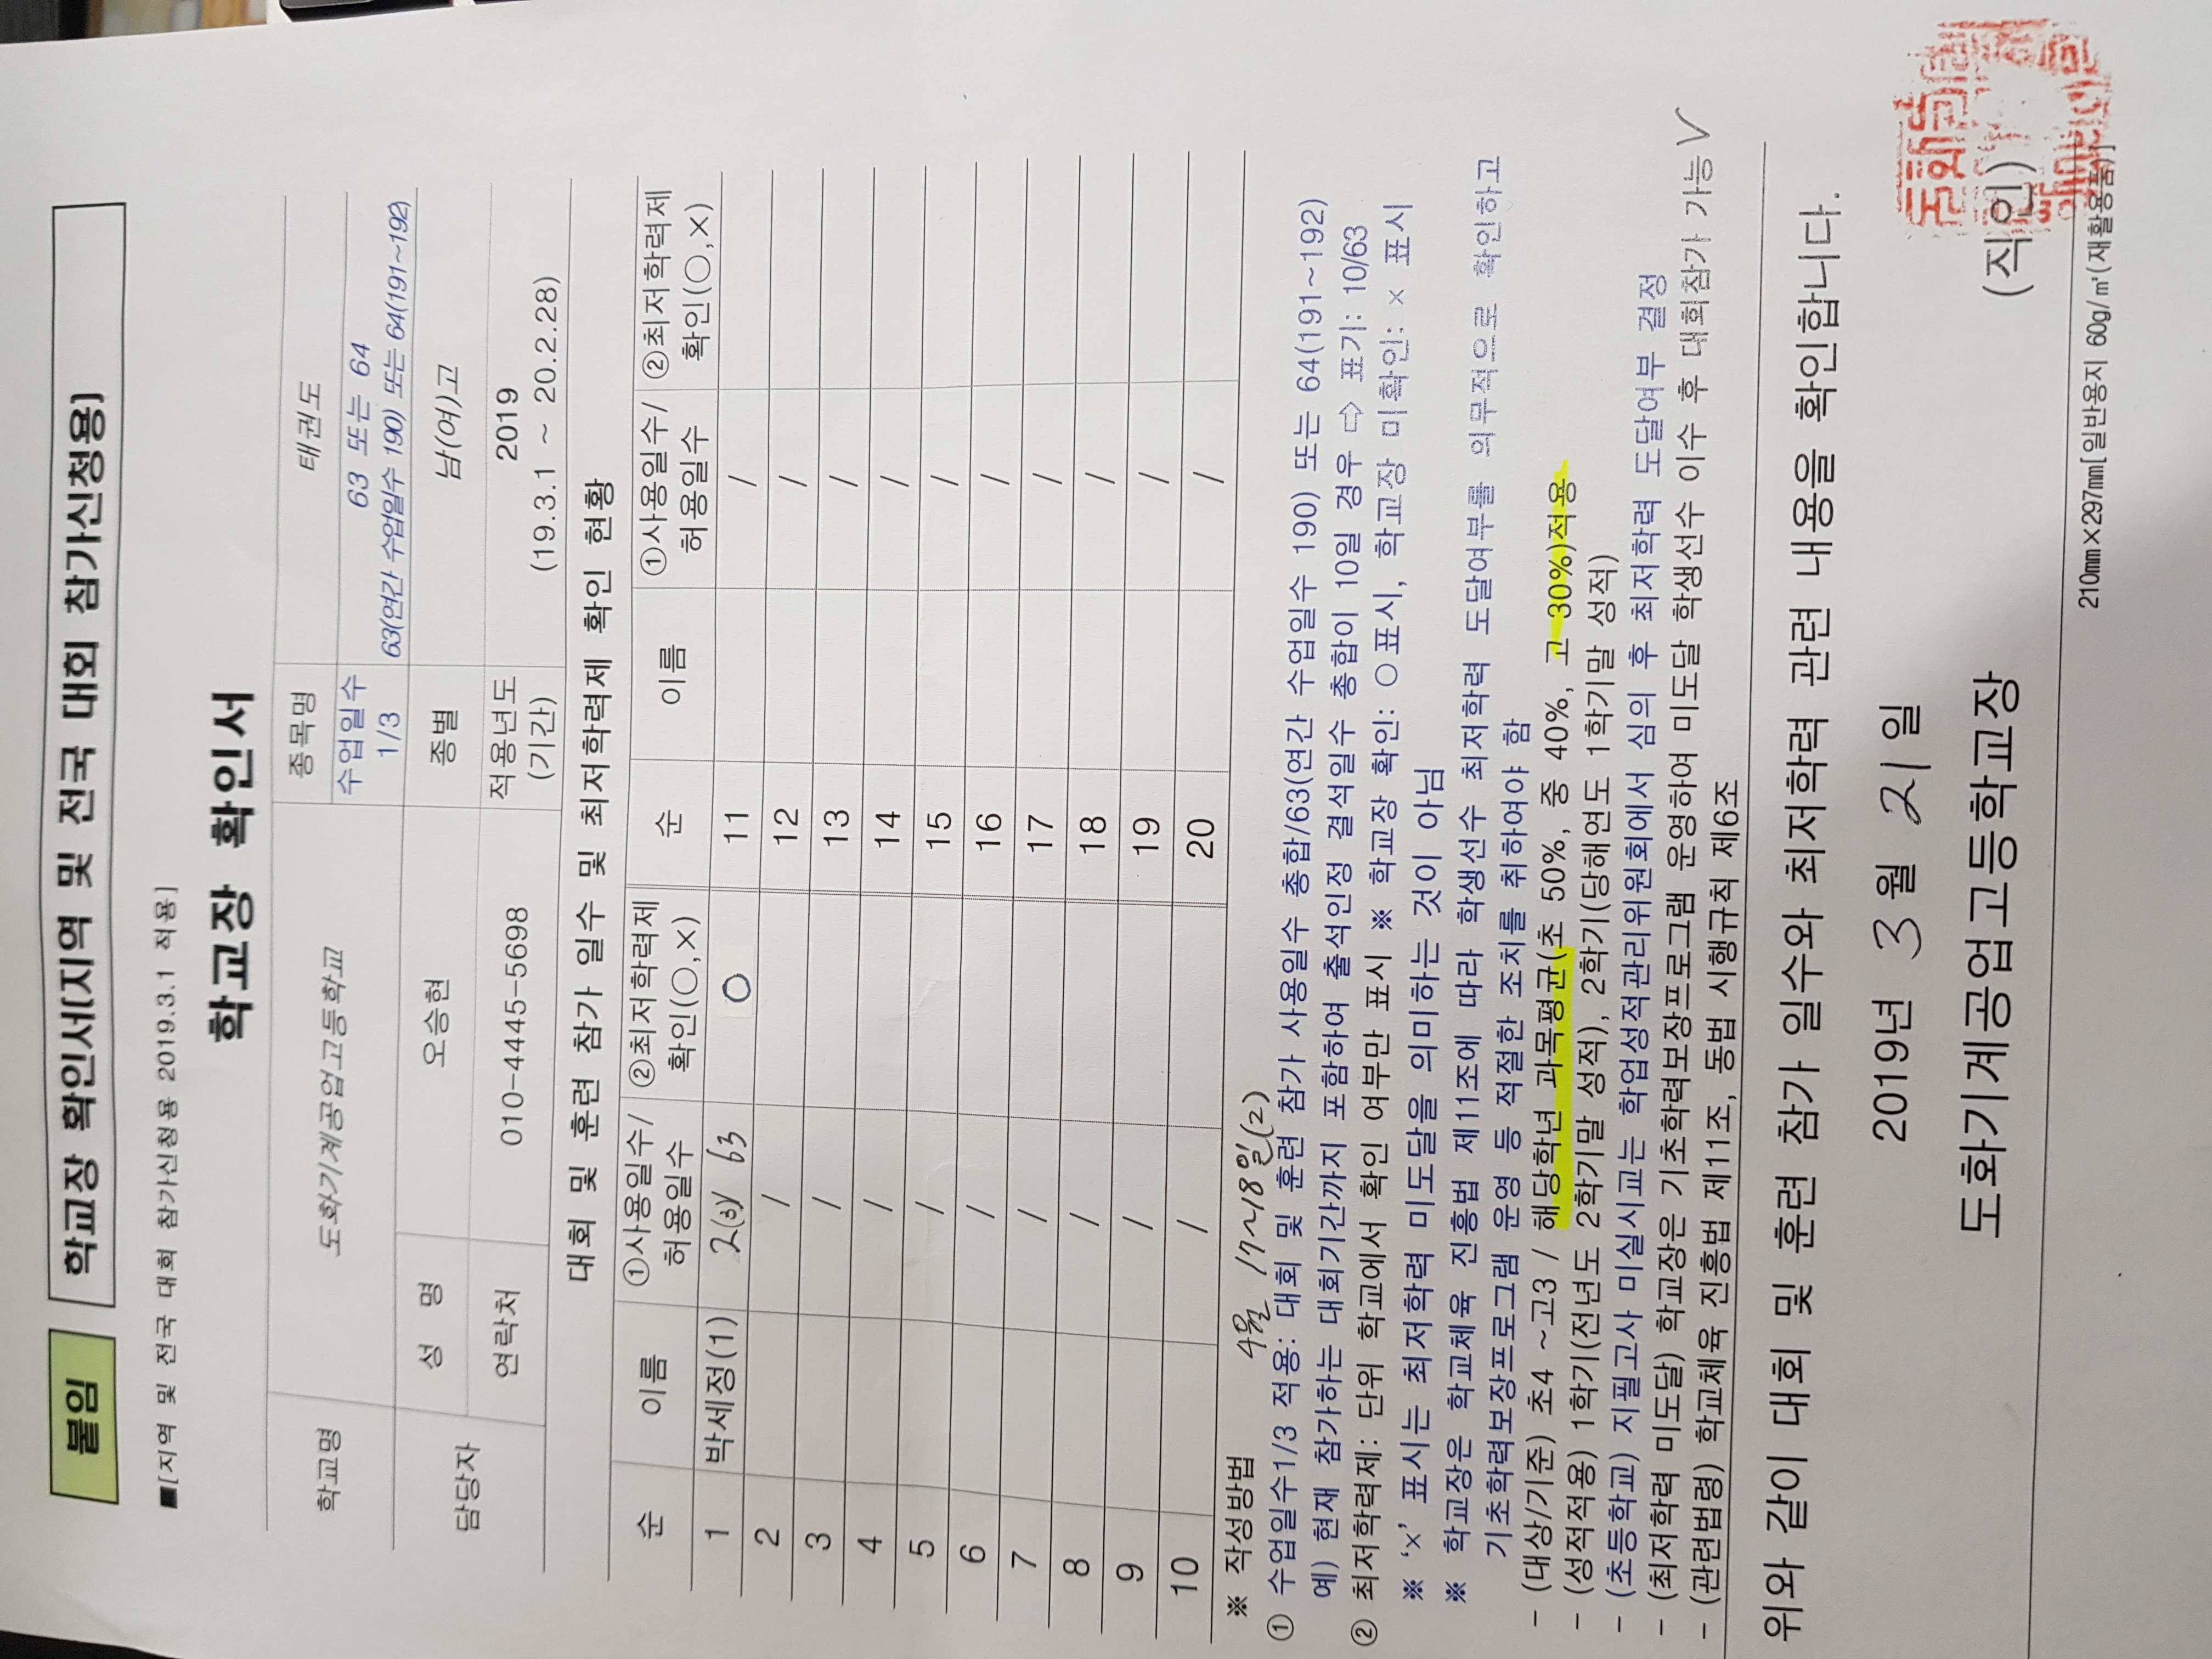 붙임 학교장 확인서(지역 및 전국 대회 참가신청용)
■[지역 및 전국 대회 참가신청용 2019.3.1 적용]
학교장 확인서
학교명 도화기계공업고등학교 종목명 태권도
수업일수 1/3 63 또는 64
63(연간 수업일수 190) 또는 64(191~192)
담당자 성 명 오승현 종별 남(여)고
연락처 010-4445-5698 적용년도 (기간) 2019
(19.3.1 ~ 20.2.28)
대회 및 훈련 참가 일수 및 최저학력제 확인 현황
순 이름 ①사용일수/허용일수 ②최저학력제 확인(○,×) 순 이름 ①사용일수/허용일수 ②최저학력제 확인(○,×)
1 박세정(1) 2(3)/ 63 ○ 11 /
2 / 12 /
3 / 13 /
4 / 14 /
5 / 15 /
6 / 16 /
7 / 17 /
8 / 18 /
9 / 19 /
10 / 20 /
※ 작성방법 4월 17~18일(2)
① 수업일수1/3 적용: 대회 및 훈련 참가 사용일수 총합/63(연간 수업일수 190) 또는 64(191~192)
예) 현재 참가하는 대회기간까지 포함하여 출석인정 결석일수 총합이 10일 경우 ⇨ 표기: 10/63
② 최저학력제: 단위 학교에서 확인 여부만 표시 ※ 학교장 확인: ○표시, 학교장 미확인: × 표시
※ '×' 표시는 최저학력 미도달을 의미하는 것이 아님
※ 학교장은 학교체육 진흥법 제11조에 따라 학생선수 최저학력 도달여부를 의무적으로 확인하고
기초학력보장프로그램 운영 등 적절한 조치를 취하여야 함
- (대상/기준) 초4 ~고3 / 해당학년 과목평균(초 50%, 중 40%, 고 30%)적용
- (성적적용) 1학기(전년도 2학기말 성적), 2학기(당해연도 1학기말 성적)
- (초등학교) 지필고사 미실시교는 학업성적관리위원회에서 심의 후 최저학력 도달여부 결정
- (최저학력 미도달) 학교장은 기초학력보장프로그램 운영하여 미도달 학생선수 이수 후 대회참가 가능 V
- (관련법령) 학교체육 진흥법 제11조, 동법 시행규칙 제6조
위와 같이 대회 및 훈련 참가 일수와 최저학력 관련 내용을 확인합니다.
2019년 3월 21일
도화기계공업고등학교장 (직인)
210㎜×297㎜[일반용지 60g/㎡(재활용품)]